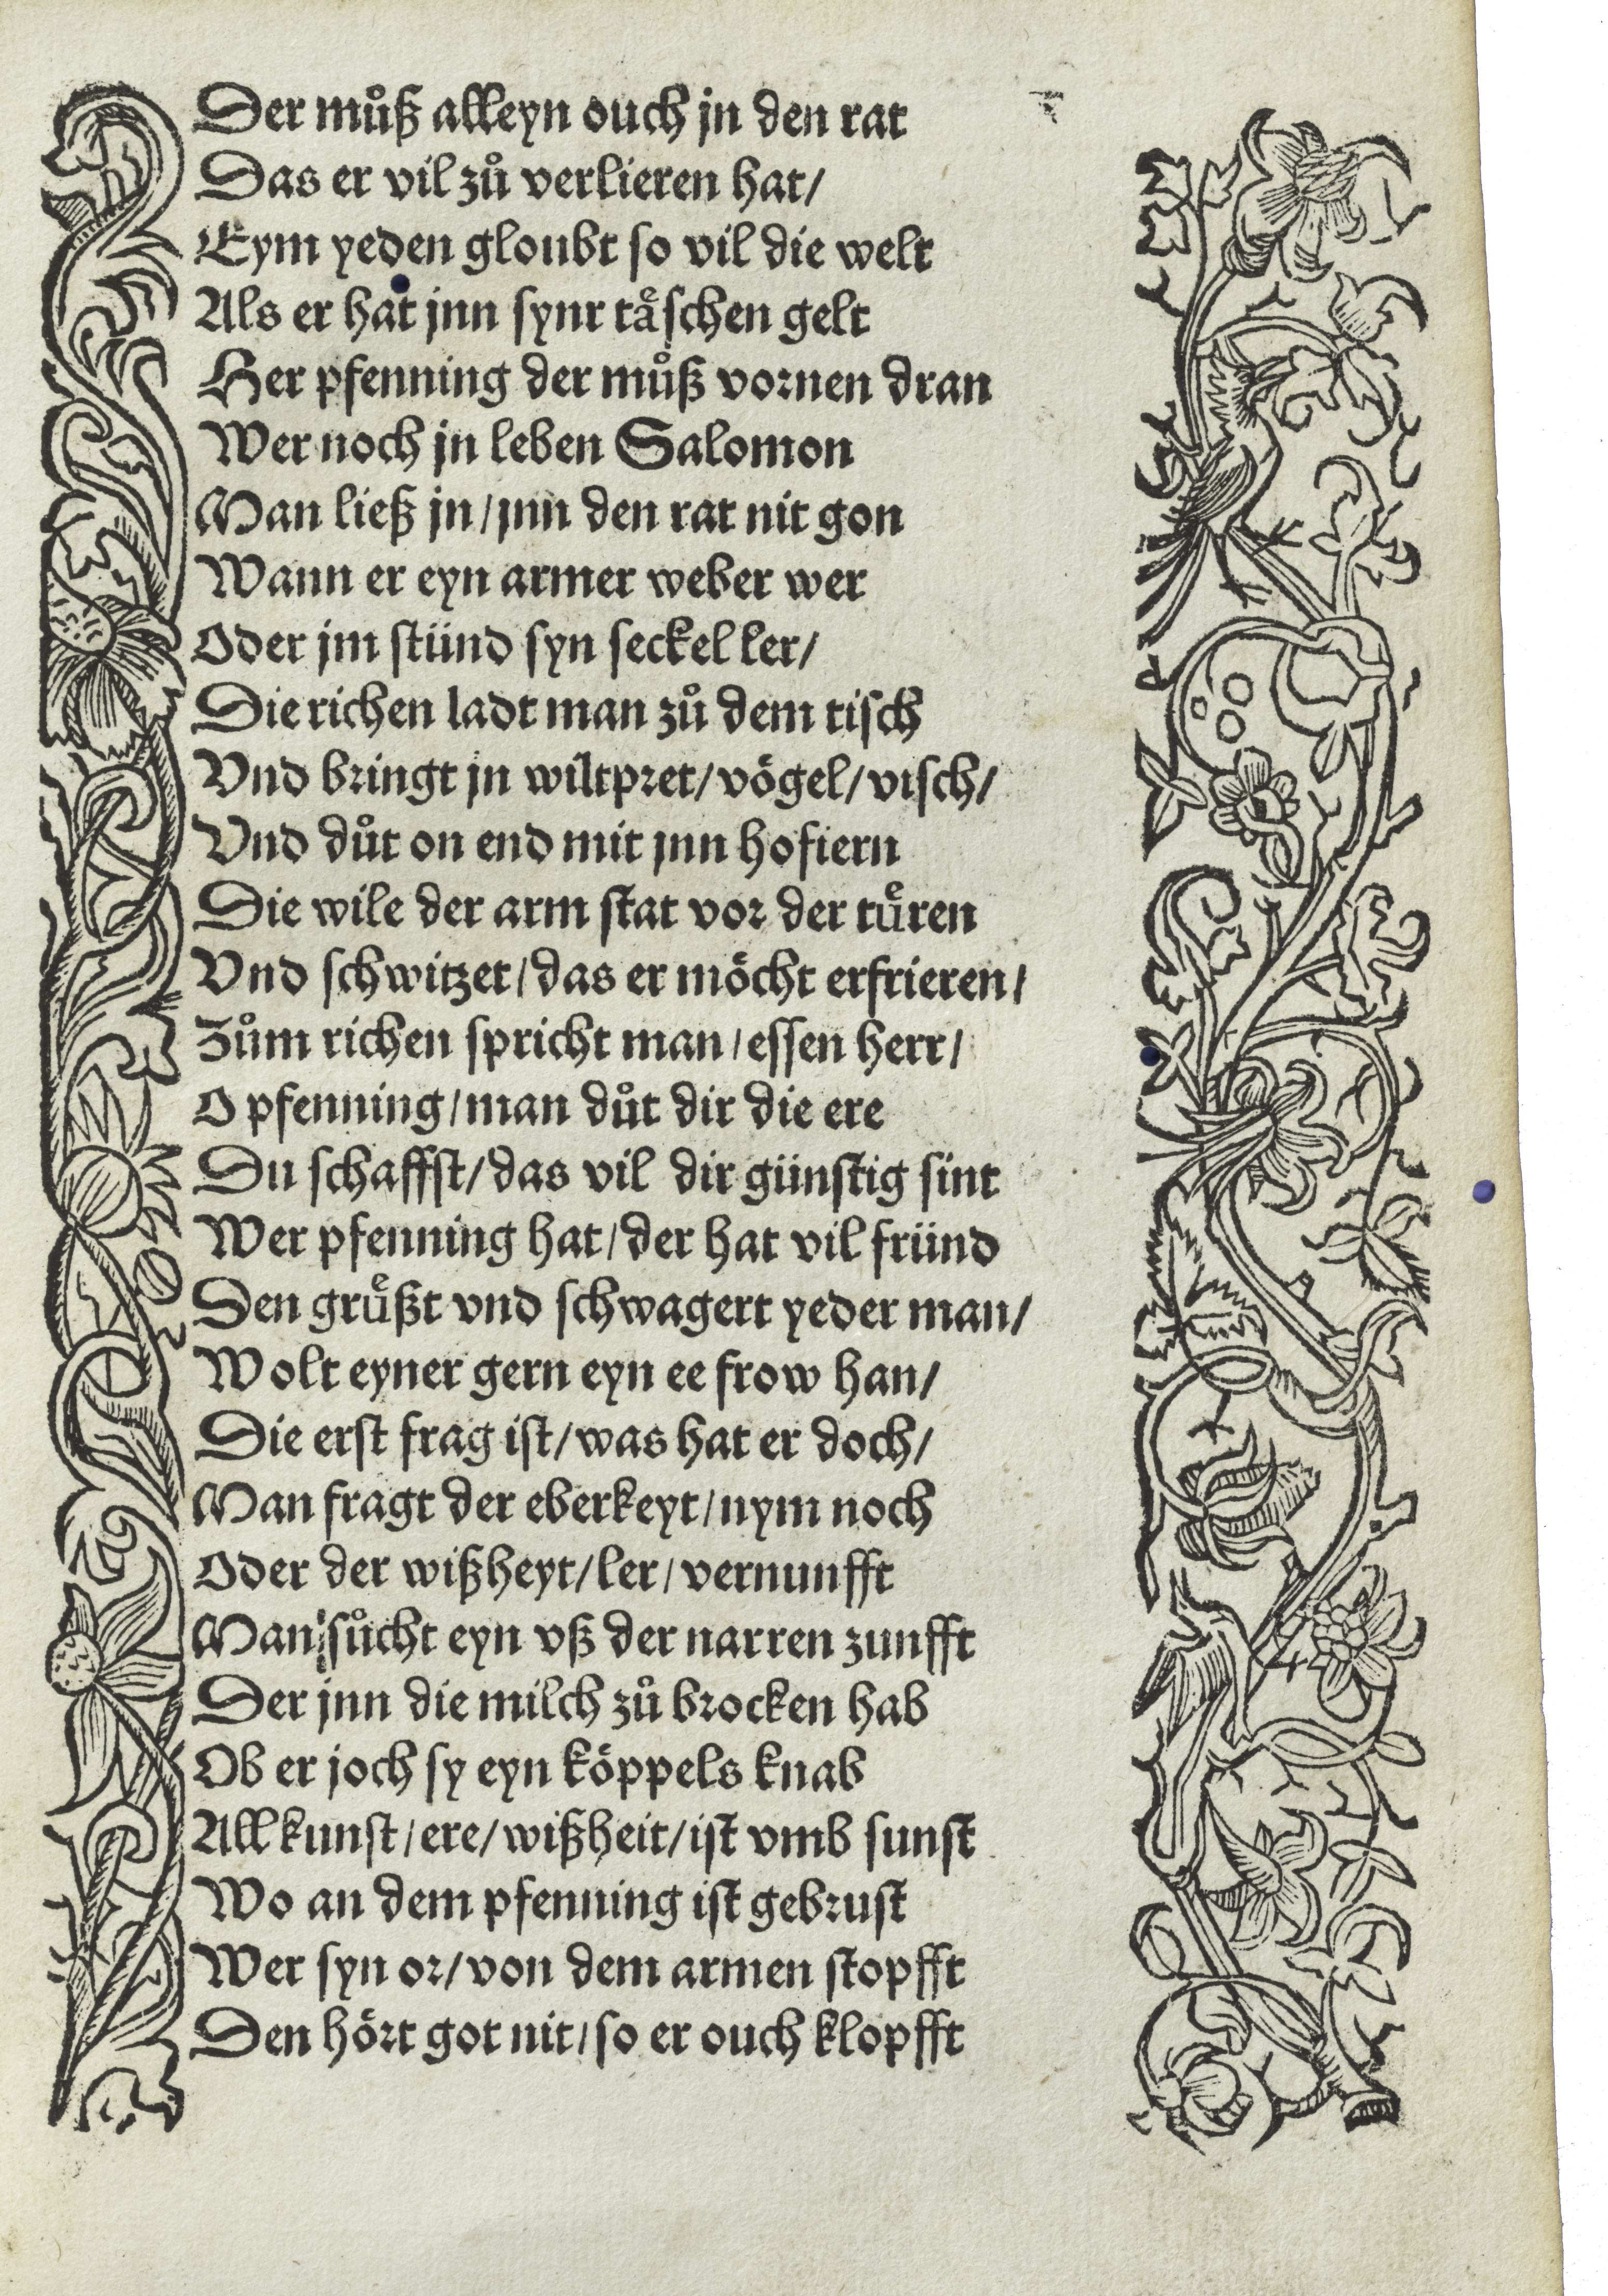 Der muͦß alleyn ouch jn den rat
Das er vil zuͦ verlieren hat/
Eym yeden gloubt so vil die welt
Als er hat jnn synr taͤschen gelt
Her pfenning der muͦß vornen dran
Wer noch jn leben Salomon
Man ließ jn/jnn den rat nit gon
Wann er eyn armer weber wer
Oder jm stünd syn seckel ler/
Die richen ladt man zuͦ dem tisch
Vnd bringt jn wiltpret/vögel/visch/
Vnd duͦt on end mit jnn hofiern
Die wile der arm stat vor der tuͤren
Vnd schwitzet/das er möcht erfrieren/
Zuͦm richen spricht man/essen herr/
O pfenning/man duͦt dir die ere
Du schaffst/das vil dir günstig sint
Wer pfenning hat/der hat vil fründ
Den gruͤßt vnd schwagert yeder man/
Wolt eyner gern eyn ee frow han/
Die erst frag ist/was hat er doch/
Man fragt der eberkeyt/nym noch
Oder der wißheyt/ler/vernunfft
Man suͦcht eyn vß der narren zunfft
Der jnn die milch zuͦ brocken hab
Ob er joch sy eyn köppels knab
All kunst/ere/wißheit/ist vmb sunst
Wo an dem pfenning ist gebrust
Wer syn or/von dem armen stopfft
Den hört got nit/so er ouch klopfft